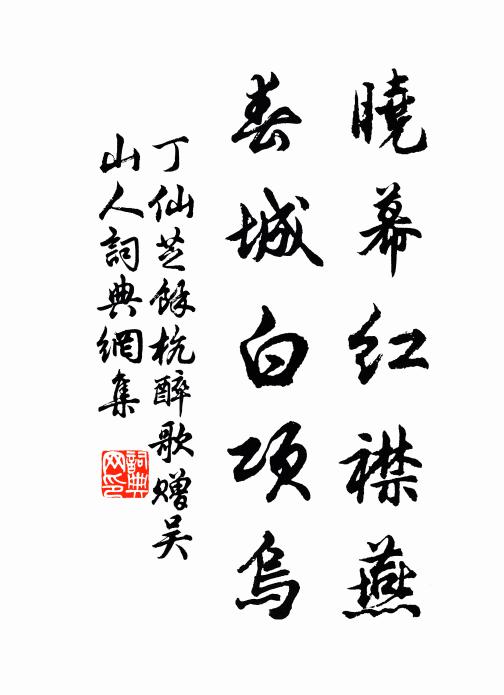 曉幕紅襟燕
春城白項烏
丁仙芝餘杭醉歌贈吳
山人詞典網集
詞典網印